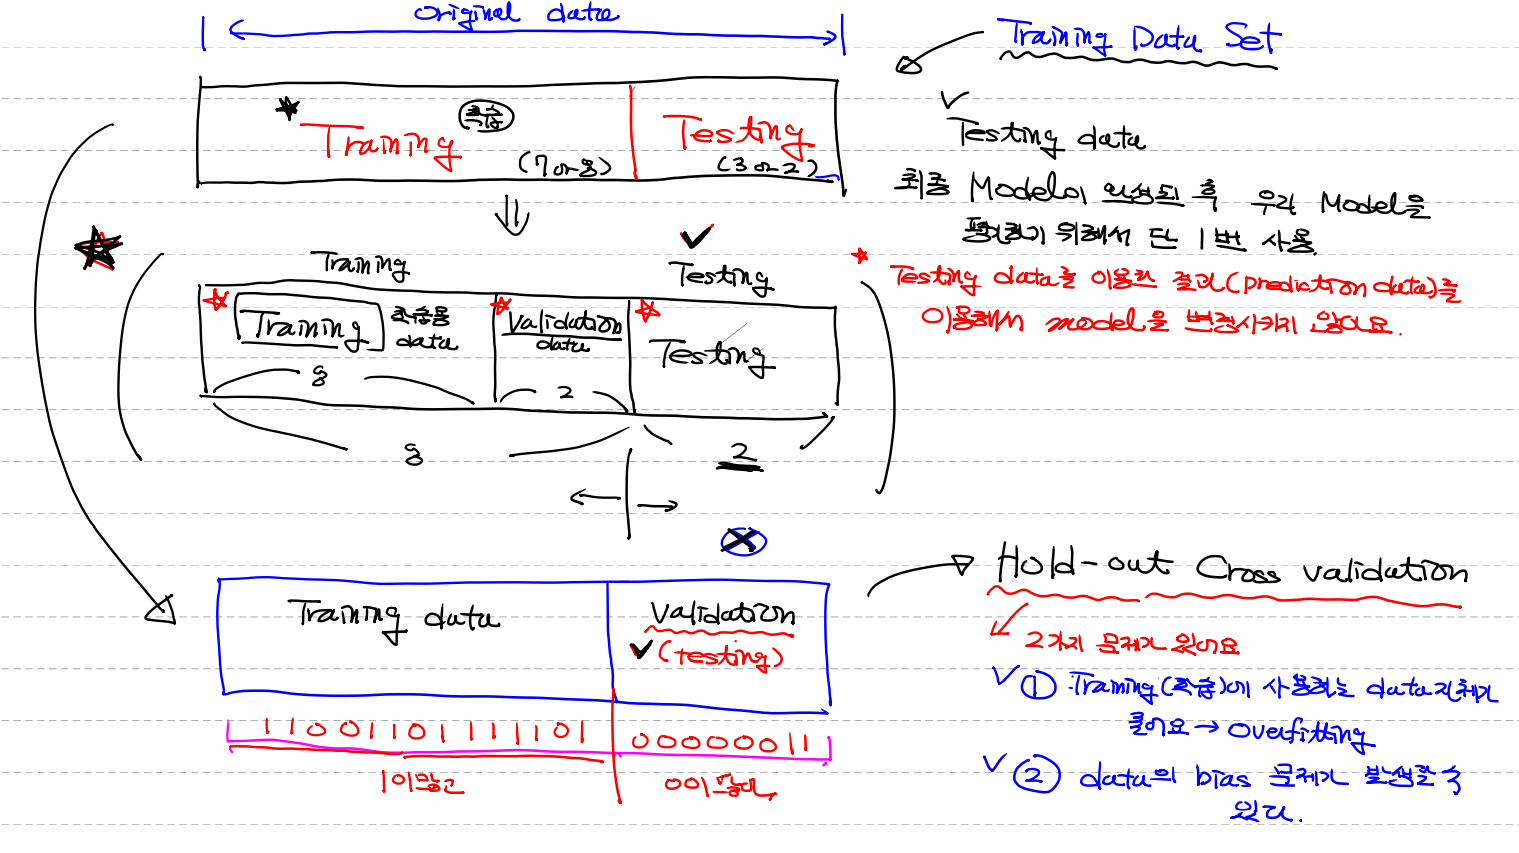 original data
Training Data Set
Training
학습
(7 or 8)
Testing
(3 or 2)
Testing data
최종 Model이 완성된 후 우리 Model을
평가하기 위해서 단 1번 사용.
Testing data를 이용한 결과(prediction data)를
이용해서 model을 변경시키지 않아요.
Training
Testing
Training
학습용
data
Validation
data
Testing
8
2
8
2
Training data
Validation
(testing)
Hold-out Cross validation
2가지 문제가 있어요
① Training(학습)에 사용하는 data 자체가
줄어요 → overfitting
② data의 bias 문제가 발생할 수
있다.
1100110111101
00000011
1이 많고
0이 많다